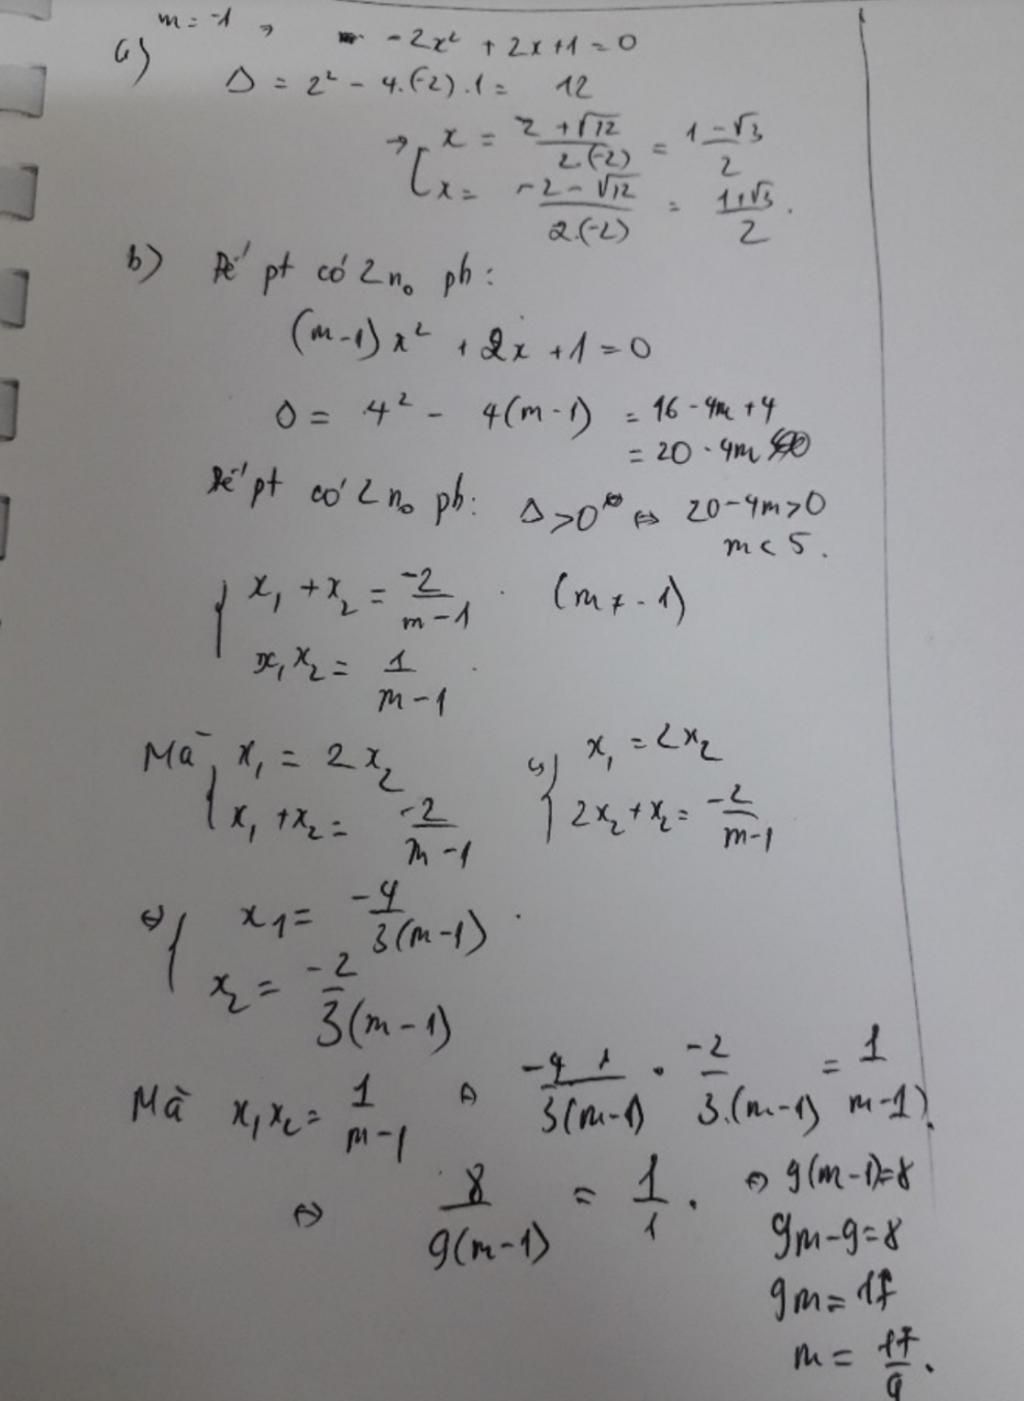 a) m = -1, -2x² + 2x + 1 = 0
Δ = 2² - 4.(-2).1 = 12
→ [ x = 2 + √12 / 2(-2) = 1 - √3 / 2
x = -2 - √12 / 2.(-2) = 1 + √3 / 2.
b) Để pt có 2 n₀ pb:
(m-1)x² + 2x + 1 = 0
Δ = 4² - 4(m-1) = 16 - 4m + 4
= 20 - 4m
Để pt có 2 n₀ pb: Δ > 0 ⇔ 20 - 4m > 0
m < 5.
{ x₁ + x₂ = -2 / m-1 . (m ≠ -1)
x₁x₂ = 1 / m-1 .
Mà { x₁ = 2x₂
x₁ + x₂ = -2 / m-1
⇔ { x₁ = 2x₂
2x₂ + x₂ = -2 / m-1
⇔ { x₁ = -4 / 3(m-1) .
x₂ = -2 / 3(m-1)
Mà x₁x₂ = 1 / m-1 ⇔ -4 / 3(m-1) . -2 / 3.(m-1) = 1 / m-1).
⇔ 8 / 9(m-1) = 1 / 1 . ⇔ 9(m-1) = 8
9m - 9 = 8
9m = 17
m = 17 / 9 .